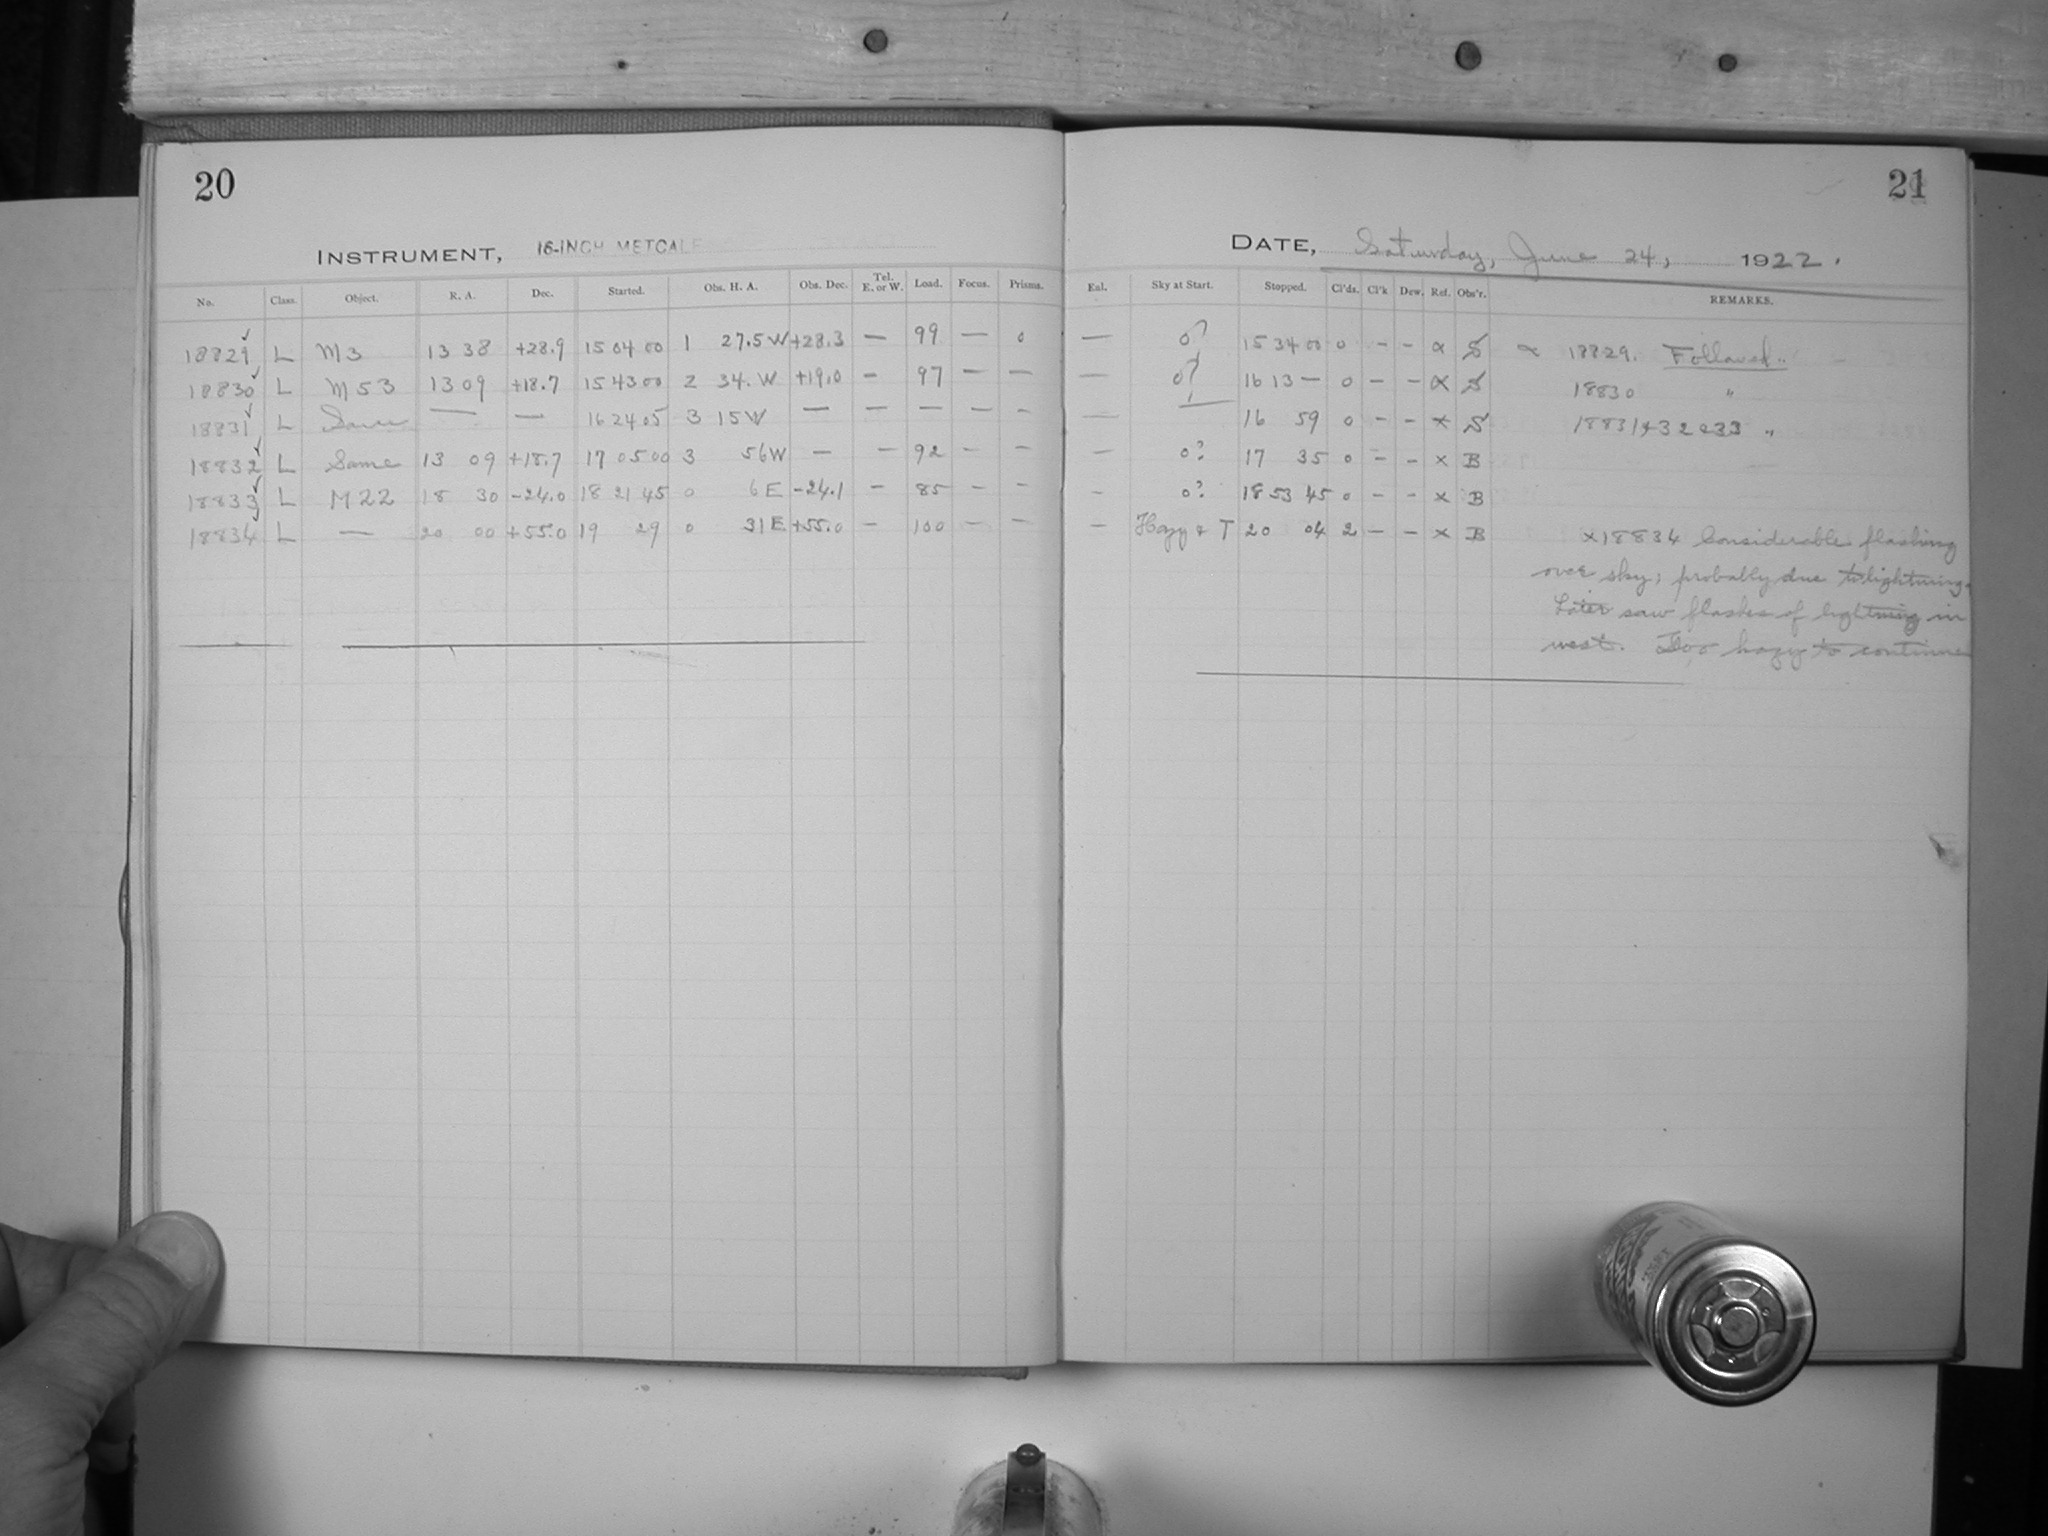 20
INSTRUMENT, 16-INCH METCALF
No. Class. Object. R. A. Dec. Started. Obs. H. A. Obs. Dec. Tel. E. or W. Load. Focus. Prisms.
18829 L M3 13 38 +28.9 15 04 00 1 27.5 W +28.3 — 99 — 0
18830 L M53 13 09 +18.7 15 43 00 2 34. W +19.0 — 97 — —
18831 L Same — — 16 24 05 3 15 W — — — — —
18832 L Same 13 09 +18.7 17 05 00 3 56 W — — 92 — —
18833 L M22 18 30 -24.0 18 21 45 0 6 E -24.1 — 85 — —
18834 L — 20 00 +55.0 19 29 0 31 E +55.0 — 100 — —
21
DATE, Saturday, June 24, 1922.
Eal. Sky at Start. Stopped. Cl'ds. Cl'k Dew. Ref. Obs'r. REMARKS.
— 0? 15 34 00 0 - - α S α 18829. Followed..
— 0? 16 13 — 0 - - α S 18830 "
— 16 59 0 - - x S 18831+32+33 "
— 0? 17 35 0 - - x B
- 0? 18 53 45 0 - - x B
— Hazy & T 20 04 2 - - x B x18834 Considerable flashing
over sky; probably due to lightning.
Later saw flashes of lightning in
west. Too hazy to continue